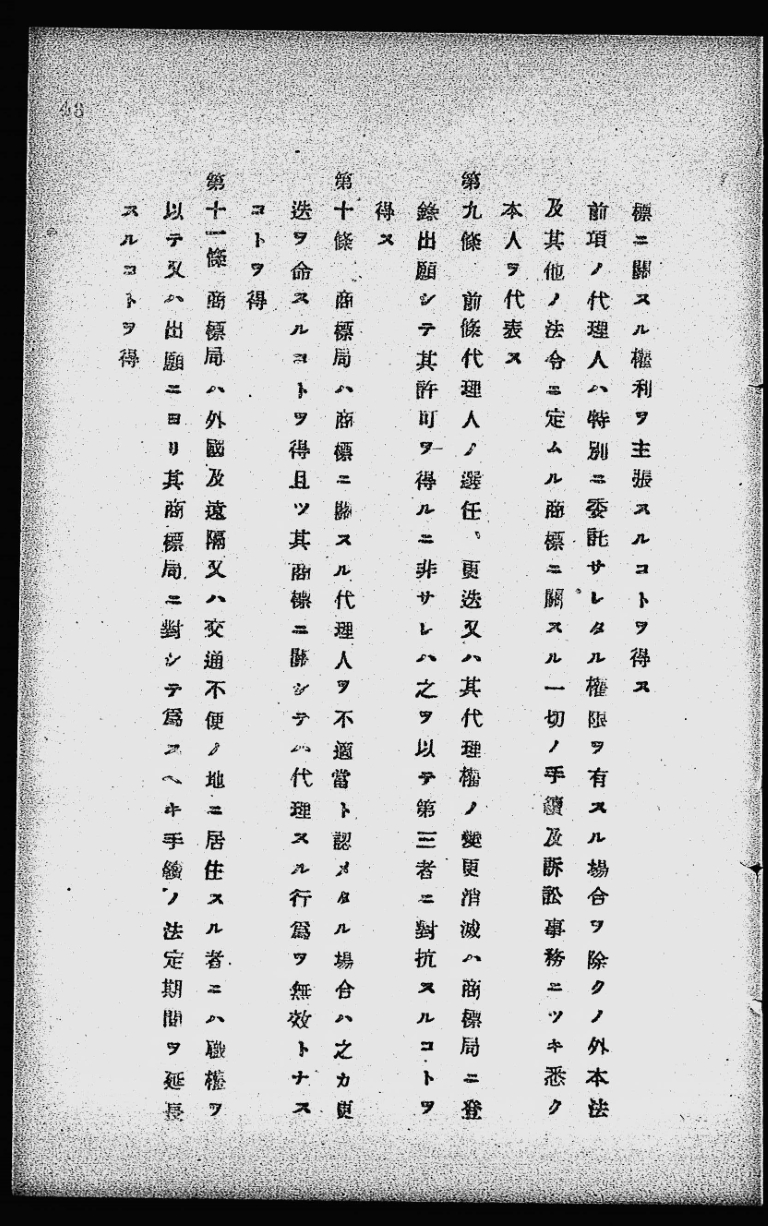 48
標ニ關スル權利ヲ主張スルコトヲ得ス
前項ノ代理人ハ特別ニ委託サレタル權限ヲ有スル場合ヲ除クノ外本法
及其他ノ法令ニ定ムル商標ニ關スル一切ノ手續及訴訟事務ニツキ悉ク
本人ヲ代表ス
第九條 前條代理人ノ選任、更迭又ハ其代理權ノ變更消滅ハ商標局ニ登
錄出願シテ其許可ヲ得ルニ非サレハ之ヲ以テ第三者ニ對抗スルコトヲ
得ス
第十條 商標局ハ商標ニ關スル代理人ヲ不適當ト認メタル場合ハ之カ更
迭ヲ命スルコトヲ得且ツ其商標ニ關シテハ代理スル行爲ヲ無效トナス
コトヲ得
第十一條 商標局ハ外國及遠隔又ハ交通不便ノ地ニ居住スル者ニハ職權ヲ
以テ又ハ出願ニヨリ其商標局ニ對シテ爲スヘキ手續ノ法定期間ヲ延長
スルコトヲ得